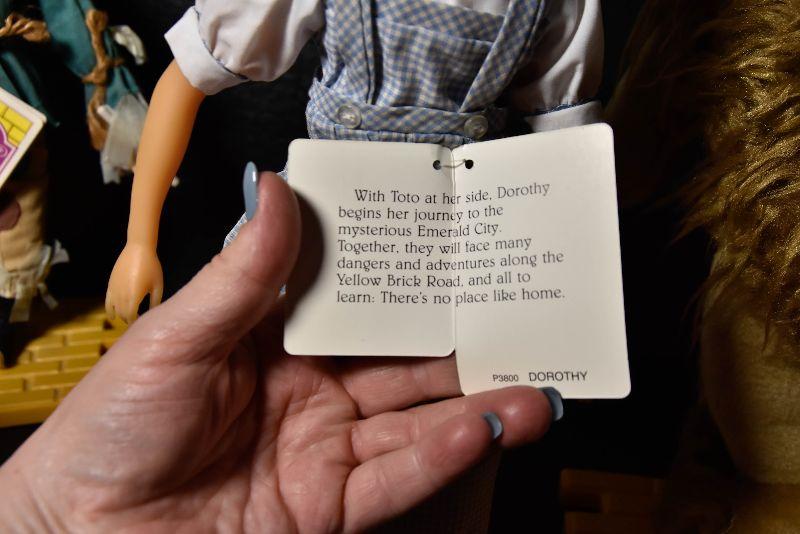 With Toto at her side, Dorothy
begins her journey to the
mysterious Emerald City.
Together, they will face many
dangers and adventures along the
Yellow Brick Road, and all to
learn: There's no place like home.
P3800 DOROTHY